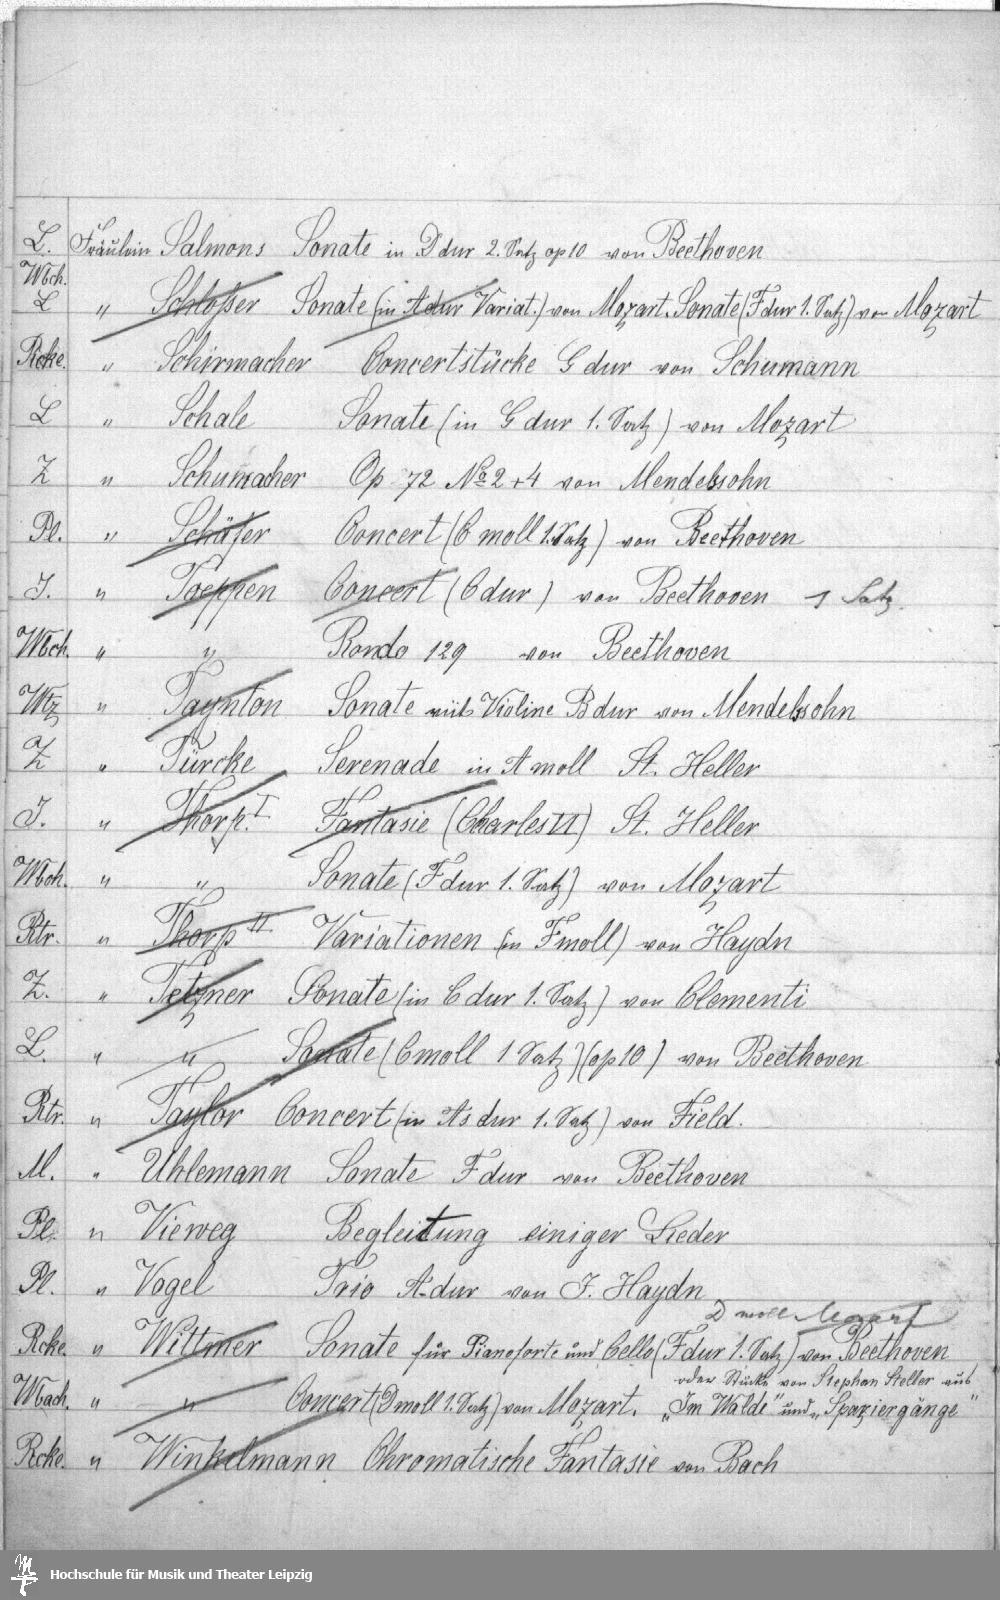 L. Fräulein Salmons Sonate in D dur 2. Satz op 10 von Beethoven
Wbch.
L " Schlosser Sonate (in A dur Variat.) von Mozart. Sonate (F dur 1. Satz) von Mozart
Rcke. " Schirmacher Concertstücke G dur von Schumann
L " Schale Sonate (in G dur 1. Satz) von Mozart
Z " Schumacher Op 72 No 2 + 4 von Mendelssohn
Pl. " Schäfer Concert (C moll 1. Satz) von Beethoven
J. " Toeppen Concert (C dur) von Beethoven 1 Satz.
Wbch. " " Rondo 129 von Beethoven
Wtz " Taynton Sonate mit Violine B dur von Mendelssohn
Z " Türcke Serenade in A moll St. Heller
J. " Thorp. I Fantasie (Charles VI) St. Heller
Wbch. " " Sonate (F dur 1. Satz) von Mozart
Rtr. " Thorp II Variationen (in F moll) von Haydn
Z. " Tetzner Sonate (in C dur 1. Satz) von Clementi
L. " " Sonate (C moll 1 Satz) (op 10) von Beethoven
Rtr. " Taylor Concert (in As dur 1. Satz) von Field.
M. " Uhlemann Sonate F dur von Beethoven
Pl. " Vieweg Begleitung einiger Lieder
Pl. " Vogel Trio A-dur von J. Haydn
D moll Mozart
Rcke. " Wittmer Sonate für Pianoforte und Cello (F dur 1. Satz) von Beethoven
oder Stücke von Stephan Steller aus
Wbach. " " Concert (D moll 1. Satz) von Mozart. „Im Walde" und „Spaziergänge"
Rcke. " Winkelmann Chromatische Fantasie von Bach
Hochschule für Musik und Theater Leipzig